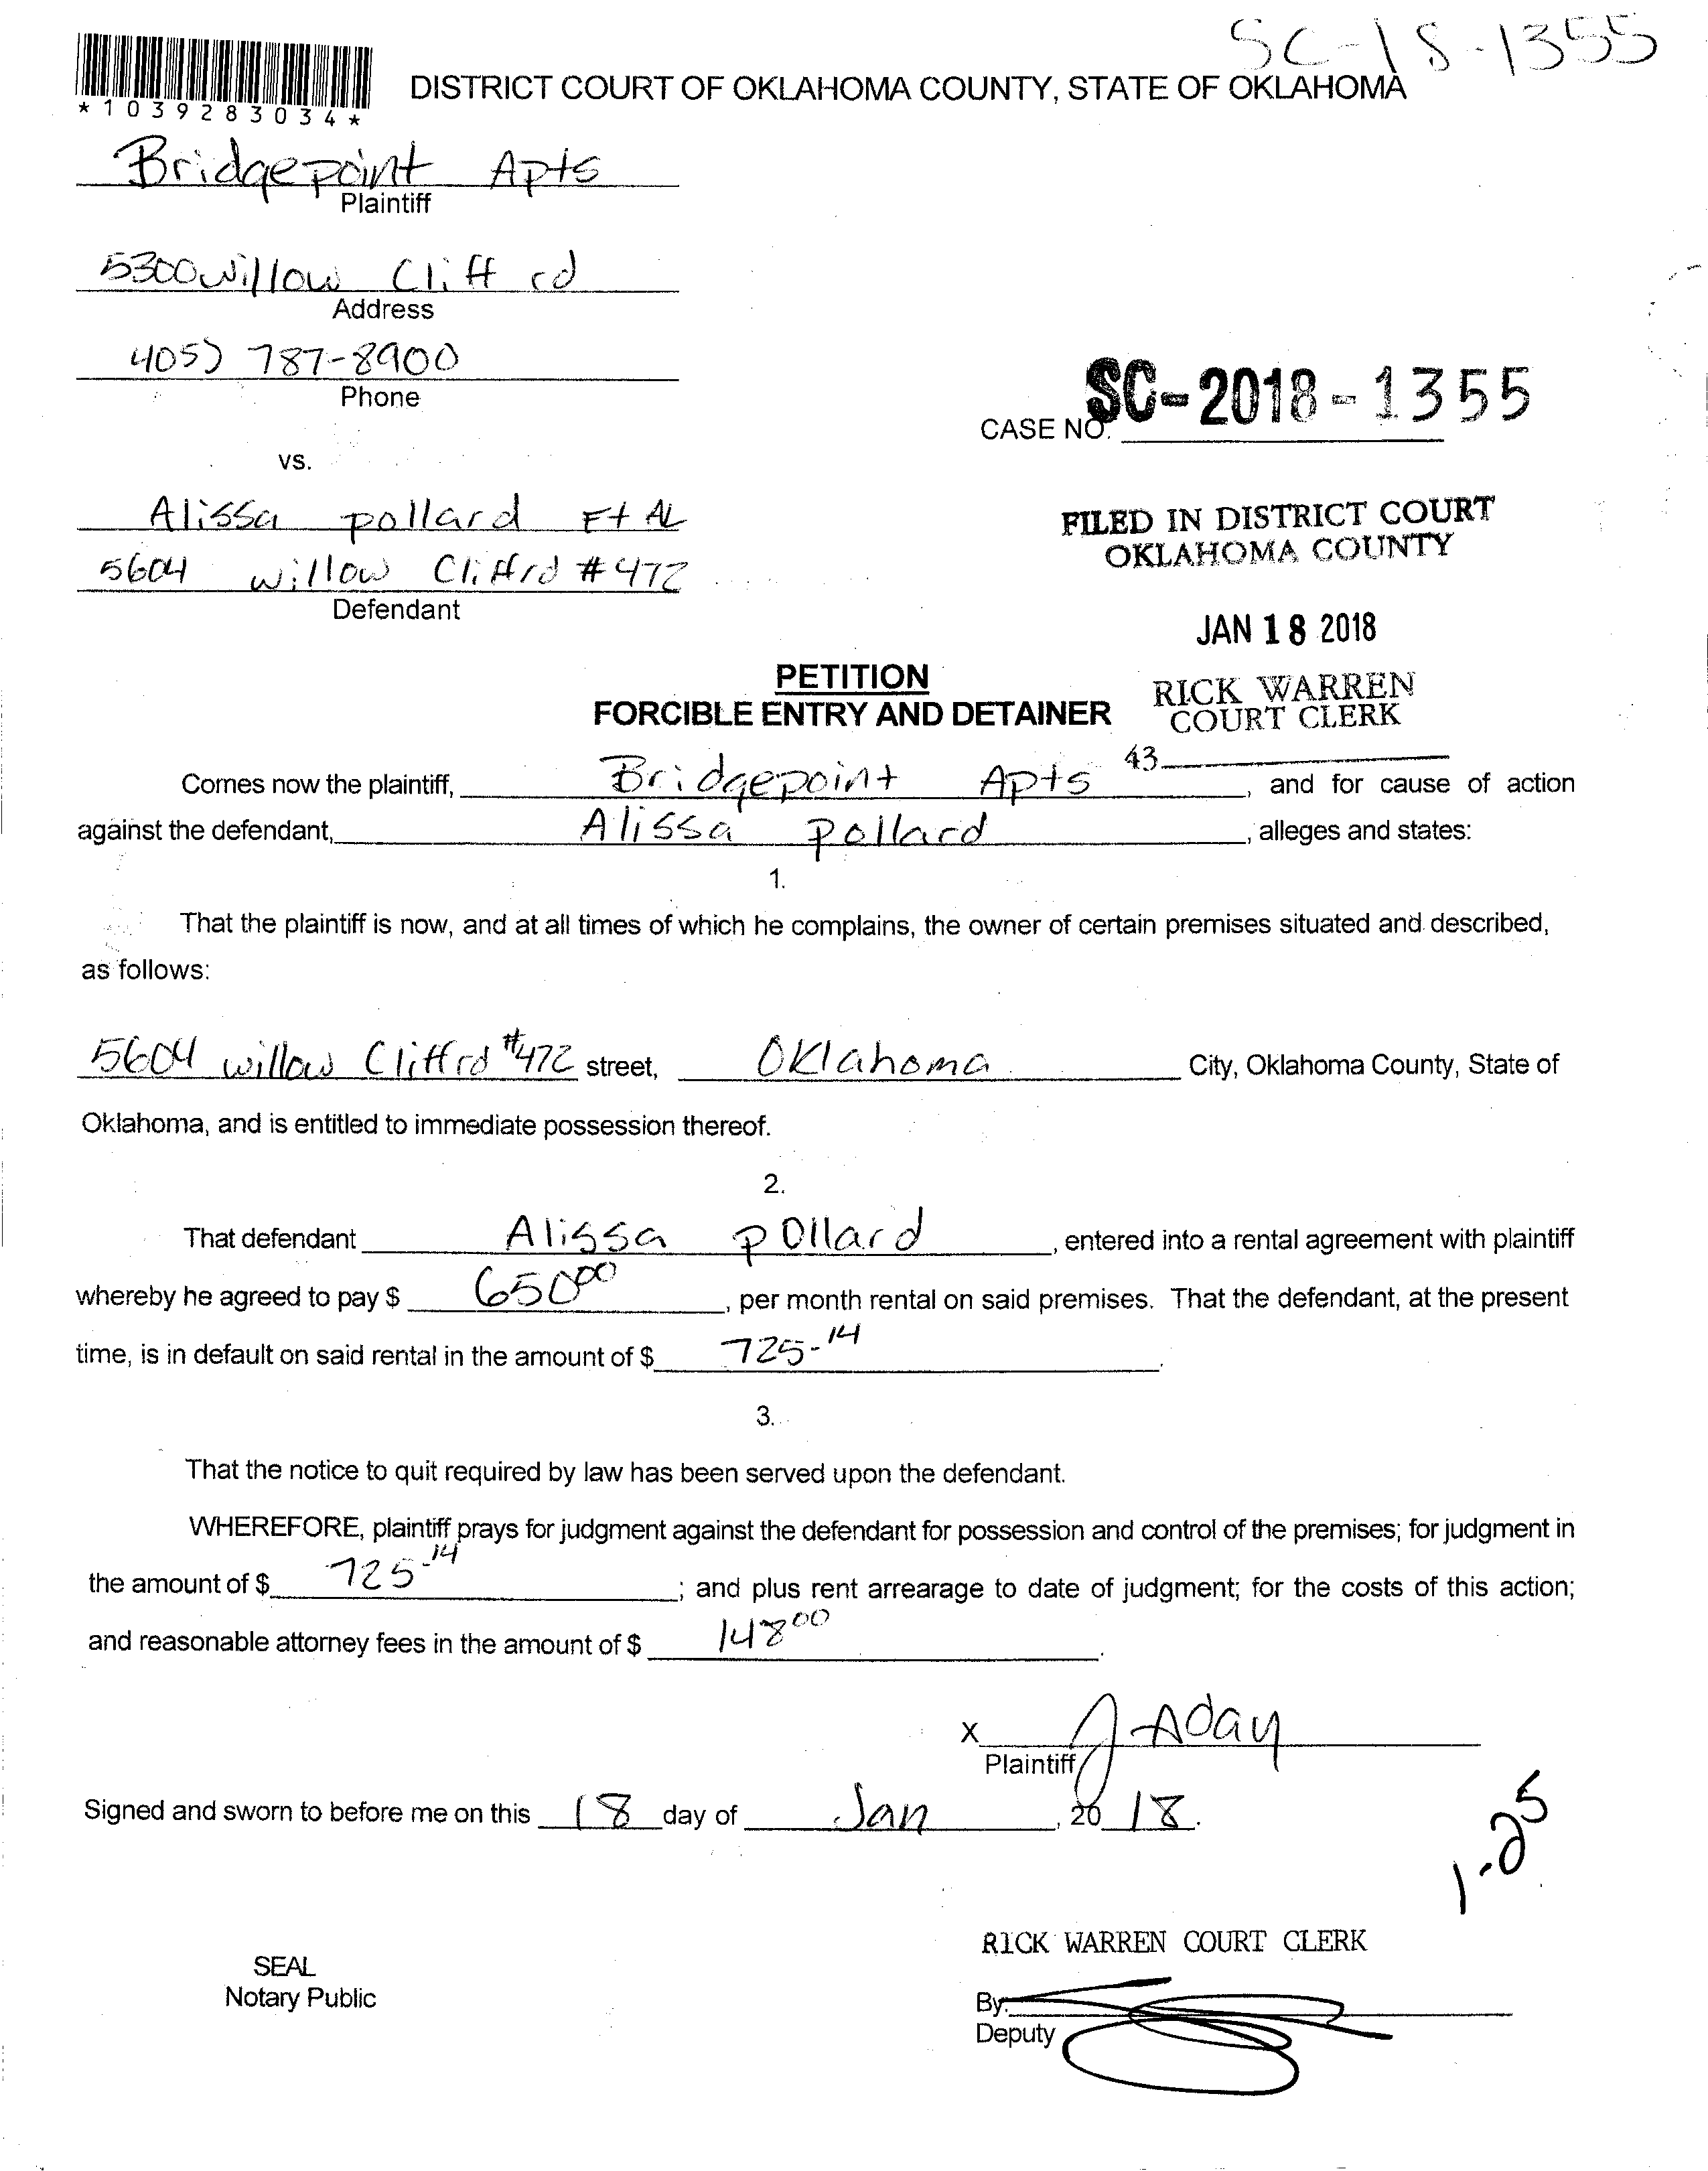 SC-18-1355
*1039283034*
DISTRICT COURT OF OKLAHOMA COUNTY, STATE OF OKLAHOMA
Bridgepoint Apts
Plaintiff
5300 willow Cliff rd
Address
405) 787-8900
Phone
CASE NO. SC-2018-1355
vs.
Alissa pollard Et AL
5604 willow Cliff rd #472
Defendant
FILED IN DISTRICT COURT
OKLAHOMA COUNTY
JAN 18 2018
RICK WARREN
COURT CLERK
43
PETITION
FORCIBLE ENTRY AND DETAINER
Comes now the plaintiff, Bridgepoint Apts, and for cause of action
against the defendant, Alissa Pollard, alleges and states:
1.
That the plaintiff is now, and at all times of which he complains, the owner of certain premises situated and described,
as follows:
5604 willow Cliff rd #472 street, Oklahoma City, Oklahoma County, State of
Oklahoma, and is entitled to immediate possession thereof.
2.
That defendant Alissa pollard, entered into a rental agreement with plaintiff
whereby he agreed to pay $ 650 00, per month rental on said premises. That the defendant, at the present
time, is in default on said rental in the amount of $ 725-14.
3.
That the notice to quit required by law has been served upon the defendant.
WHEREFORE, plaintiff prays for judgment against the defendant for possession and control of the premises; for judgment in
the amount of $ 725-14; and plus rent arrearage to date of judgment; for the costs of this action;
and reasonable attorney fees in the amount of $ 148 00.
X J Aday
Plaintiff
Signed and sworn to before me on this 18 day of Jan, 20 18.
1-25
RICK WARREN COURT CLERK
SEAL
Notary Public
By:
Deputy